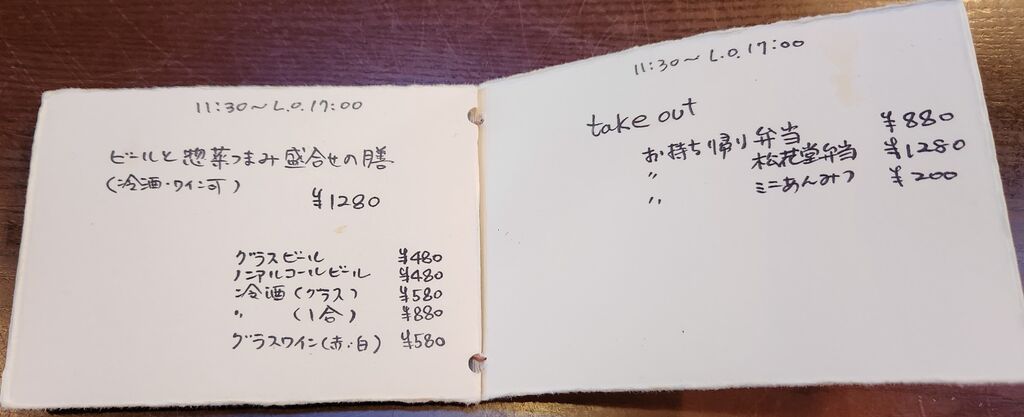 11:30〜L.O.17:00
ビールと惣菜つまみ盛合せの膳
(冷酒・ワイン可)
¥1280
グラスビール ¥480
ノンアルコールビール ¥480
冷酒(グラス) ¥580
〃 (1合) ¥880
グラスワイン(赤・白) ¥580
11:30〜L.O.17:00
take out
お持ち帰り弁当 ¥880
〃 松花堂弁当 ¥1280
〃 ミニあんみつ ¥200